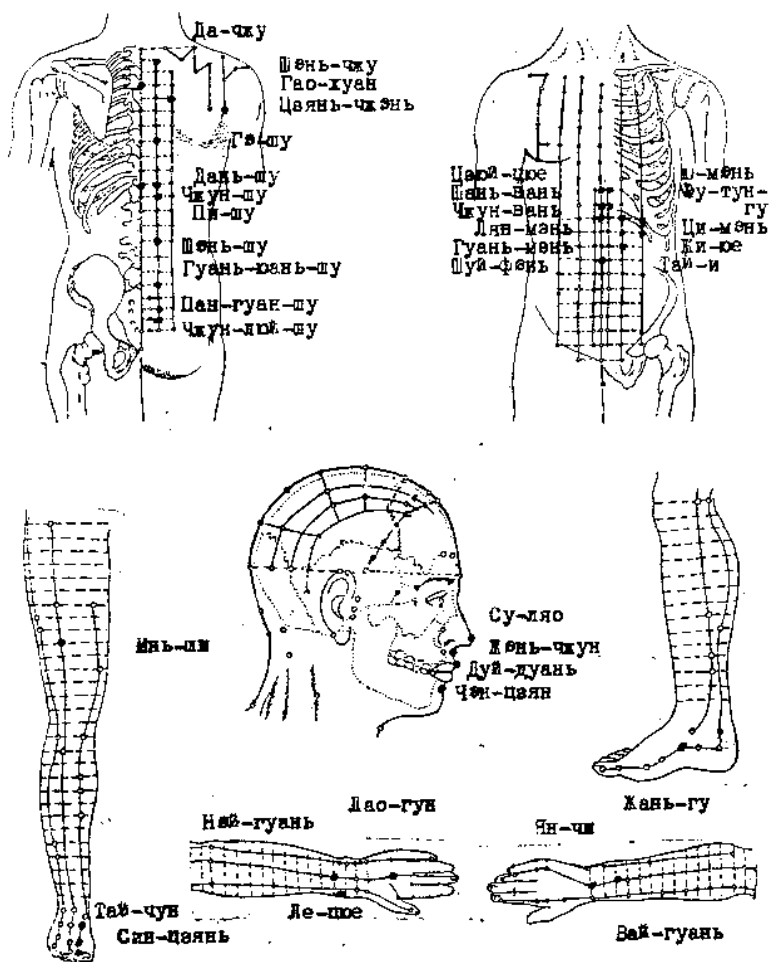 Да-чжу
Шэнь-чжу
Гао-хуан
Цзянь-чжэнь
Гэ-шу
Дань-шу
Чжун-шу
Пи-шу
Шэнь-шу
Гуань-юань-шу
Пан-гуан-шу
Чжун-люй-шу
Цзюй-цюе
Шань-вань
Чжун-вань
Лян-мэнь
Гуань-мэнь
Шуй-фэнь
Фу-тун-
гу
Ци-мэнь
Жи-юе
Тай-и
Инь-ши
Су-ляо
Жэнь-чжун
Дуй-дуань
Чэн-цзян
Тай-чун
Син-цзянь
Лао-гун
Най-гуань
Ле-цюе
Жань-гу
Ян-чи
Вай-гуань